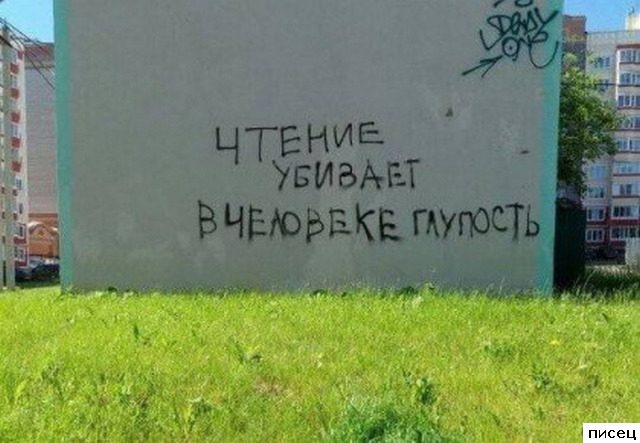 ЧТЕНИЕ
УБИВАЕТ
В ЧЕЛОВЕКЕ ГЛУПОСТЬ
писец